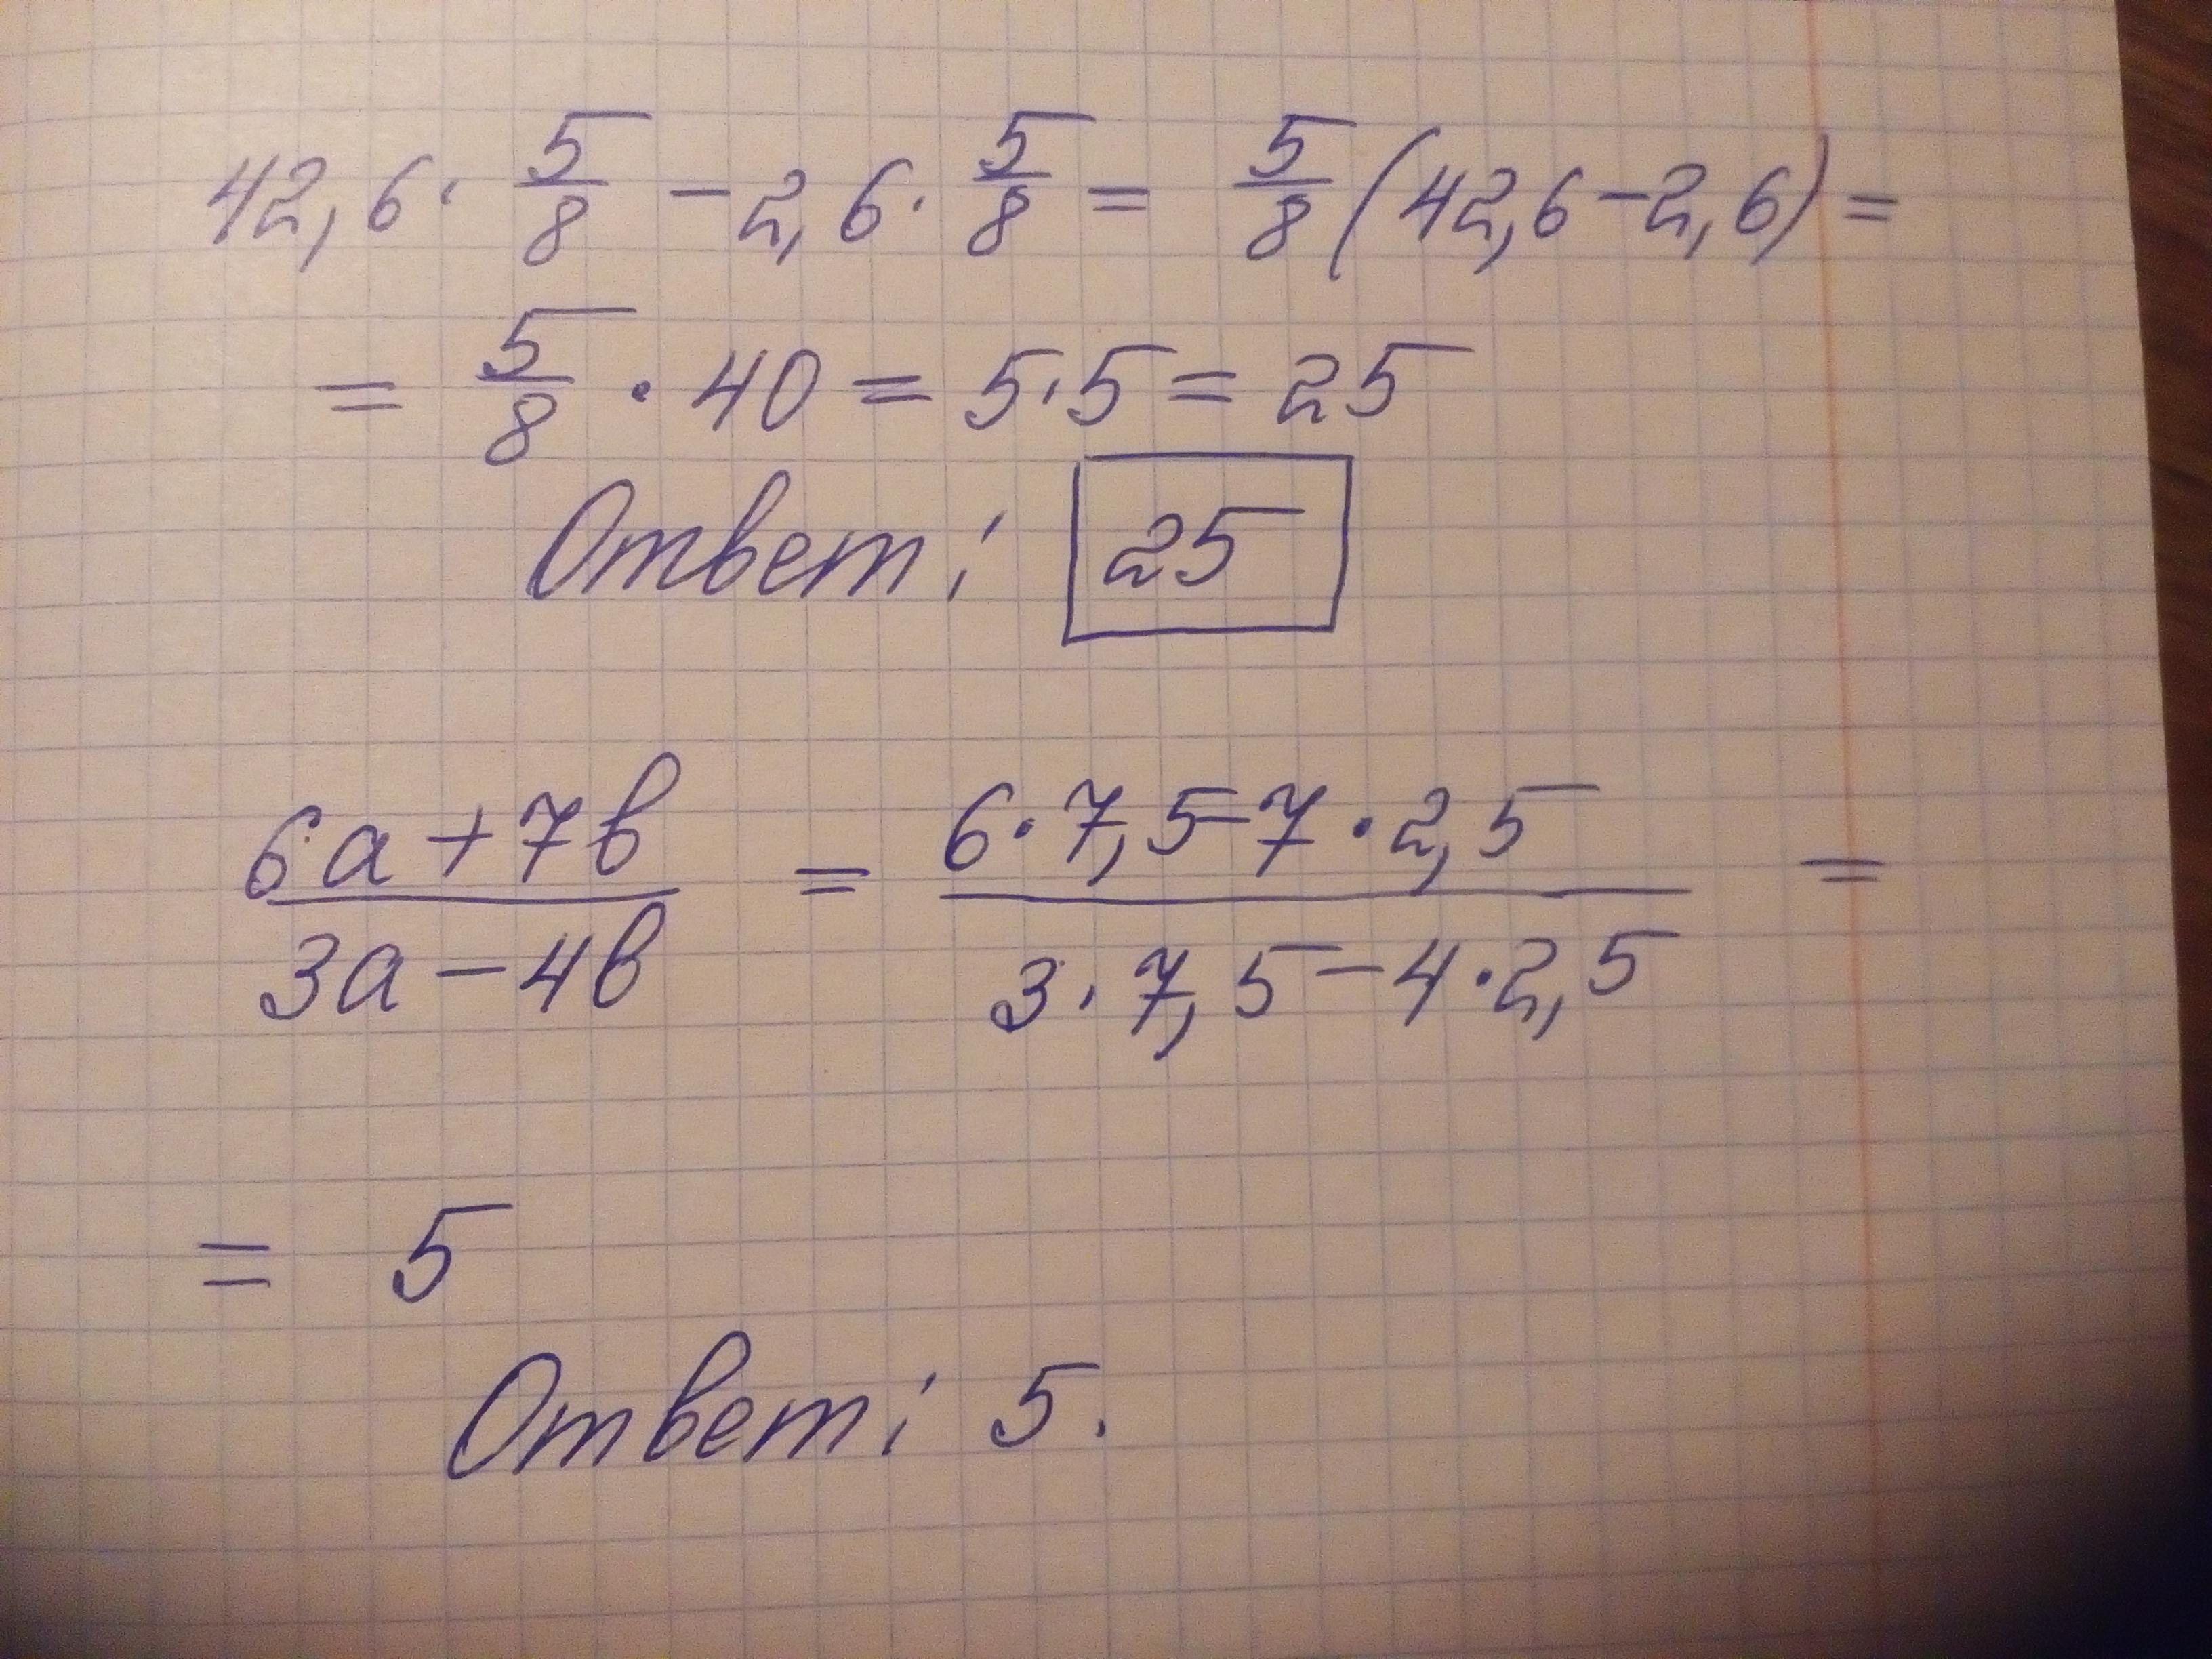 42,6 · 5/8 - 2,6 · 5/8 = 5/8 (42,6 - 2,6) =
= 5/8 · 40 = 5 · 5 = 25
Ответ: 25
(6a + 7b)/(3a - 4b) = (6 · 7,5 - 7 · 2,5)/(3 · 7,5 - 4 · 2,5) =
= 5
Ответ: 5.